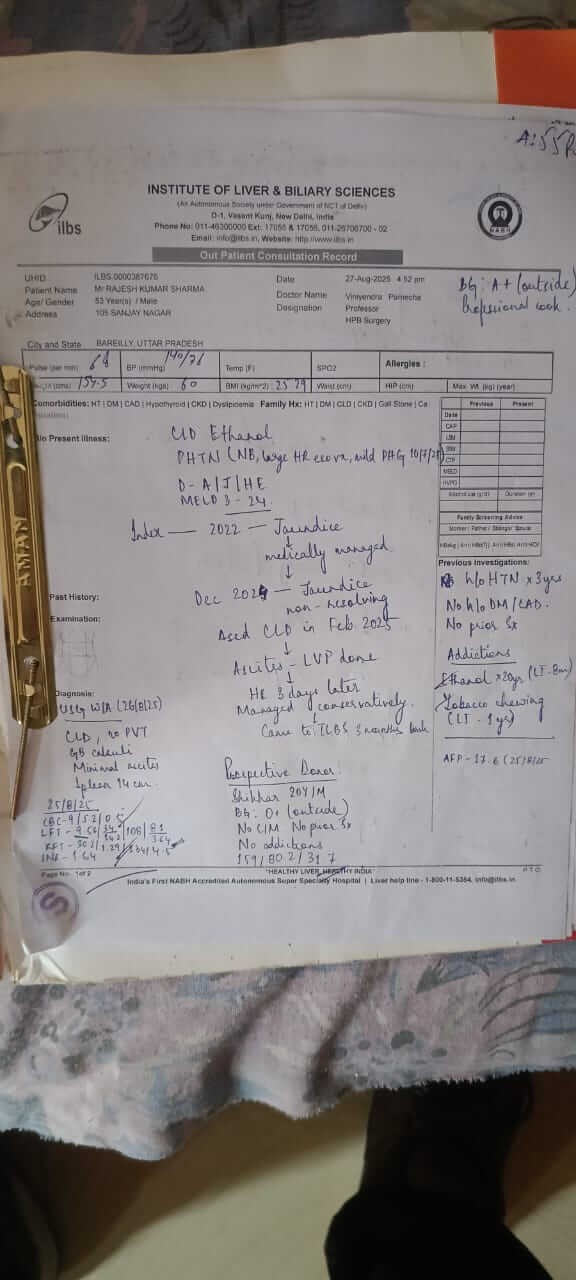 A: 55
ilbs
INSTITUTE OF LIVER & BILIARY SCIENCES
(An Autonomous Society under Government of NCT of Delhi)
D-1, Vasant Kunj, New Delhi, India
Phone No: 011-46300000 Ext: 17055 & 17056, 011-26706700 - 02
Email: info@ilbs.in, Website: http://www.ilbs.in
NABH
Out Patient Consultation Record
UHID ILBS.0000387676 Date 27-Aug-2025 4:52 pm
Patient Name Mr RAJESH KUMAR SHARMA Doctor Name Viniyendra Pamecha
Age/ Gender 53 Year(s) / Male Designation Professor
Address 105 SANJAY NAGAR HPB Surgery
BG: A+ (outside)
Professional cook.
City and State BAREILLY, UTTAR PRADESH
Pulse (per min) 68 BP (mmHg) 140/76 Temp (F) SPO2 Allergies :
(cms) 154.5 Weight (kgs) 60 BMI (kg/m^2) 25.29 Waist (cm) HIP (cm) Max. Wt. (kg) (year)
Comorbidities: HT | DM | CAD | Hypothyroid | CKD | Dyslipidemia Family Hx: HT | DM | CLD | CKD | Gall Stone | Ca
Previous Present
Date
CAP
LSM
CTP
MELD
HVPG
Duration
Family Screening Advice
Mother / Father / Sibling/ Spouse
Present illness:
CLD Ethanol
PHTN (NB, large HR eso vx, mild PHG 10/7/25)
D - A/J/HE
MELD 3 - 24
Index - 2022 - Jaundice
↓
medically managed
↓
Dec 2024 - Jaundice
non-resolving
↓
Δsed CLD in Feb 2025
↓
Ascites - LVP done
↓
HE 3 days later
Managed conservatively.
↓
Came to ILBS 3 months back
Previous Investigations:
h/o HTN x 3yrs
No h/o DM/CAD.
No prior Sx
Addictions
Ethanol x 20yrs (LI - 8m)
Tobacco chewing
(LI - 1yr)
AFP - 17.6 (25/8/25
Past History:
Examination:
Diagnosis:
USG W/A (26/8/25)
CLD, no PVT
GB calculi
Minimal ascites
Spleen 14 cm.
25/8/25
CBC - 9/52/0.5
LFT - 9.56/
INR - 1.64
Prospective Donor:
Shikhar 20Y/M
BG: O+ (outside)
No C/M No prior Sx
No addictions
159/80.2/31.7
Page No: 1 of 2 "HEALTHY LIVER, HEALTHY INDIA" P.T.O
India's First NABH Accredited Autonomous Super Specialty Hospital | Liver help line - 1-800-11-5354, info@ilbs.in
S
AMAN